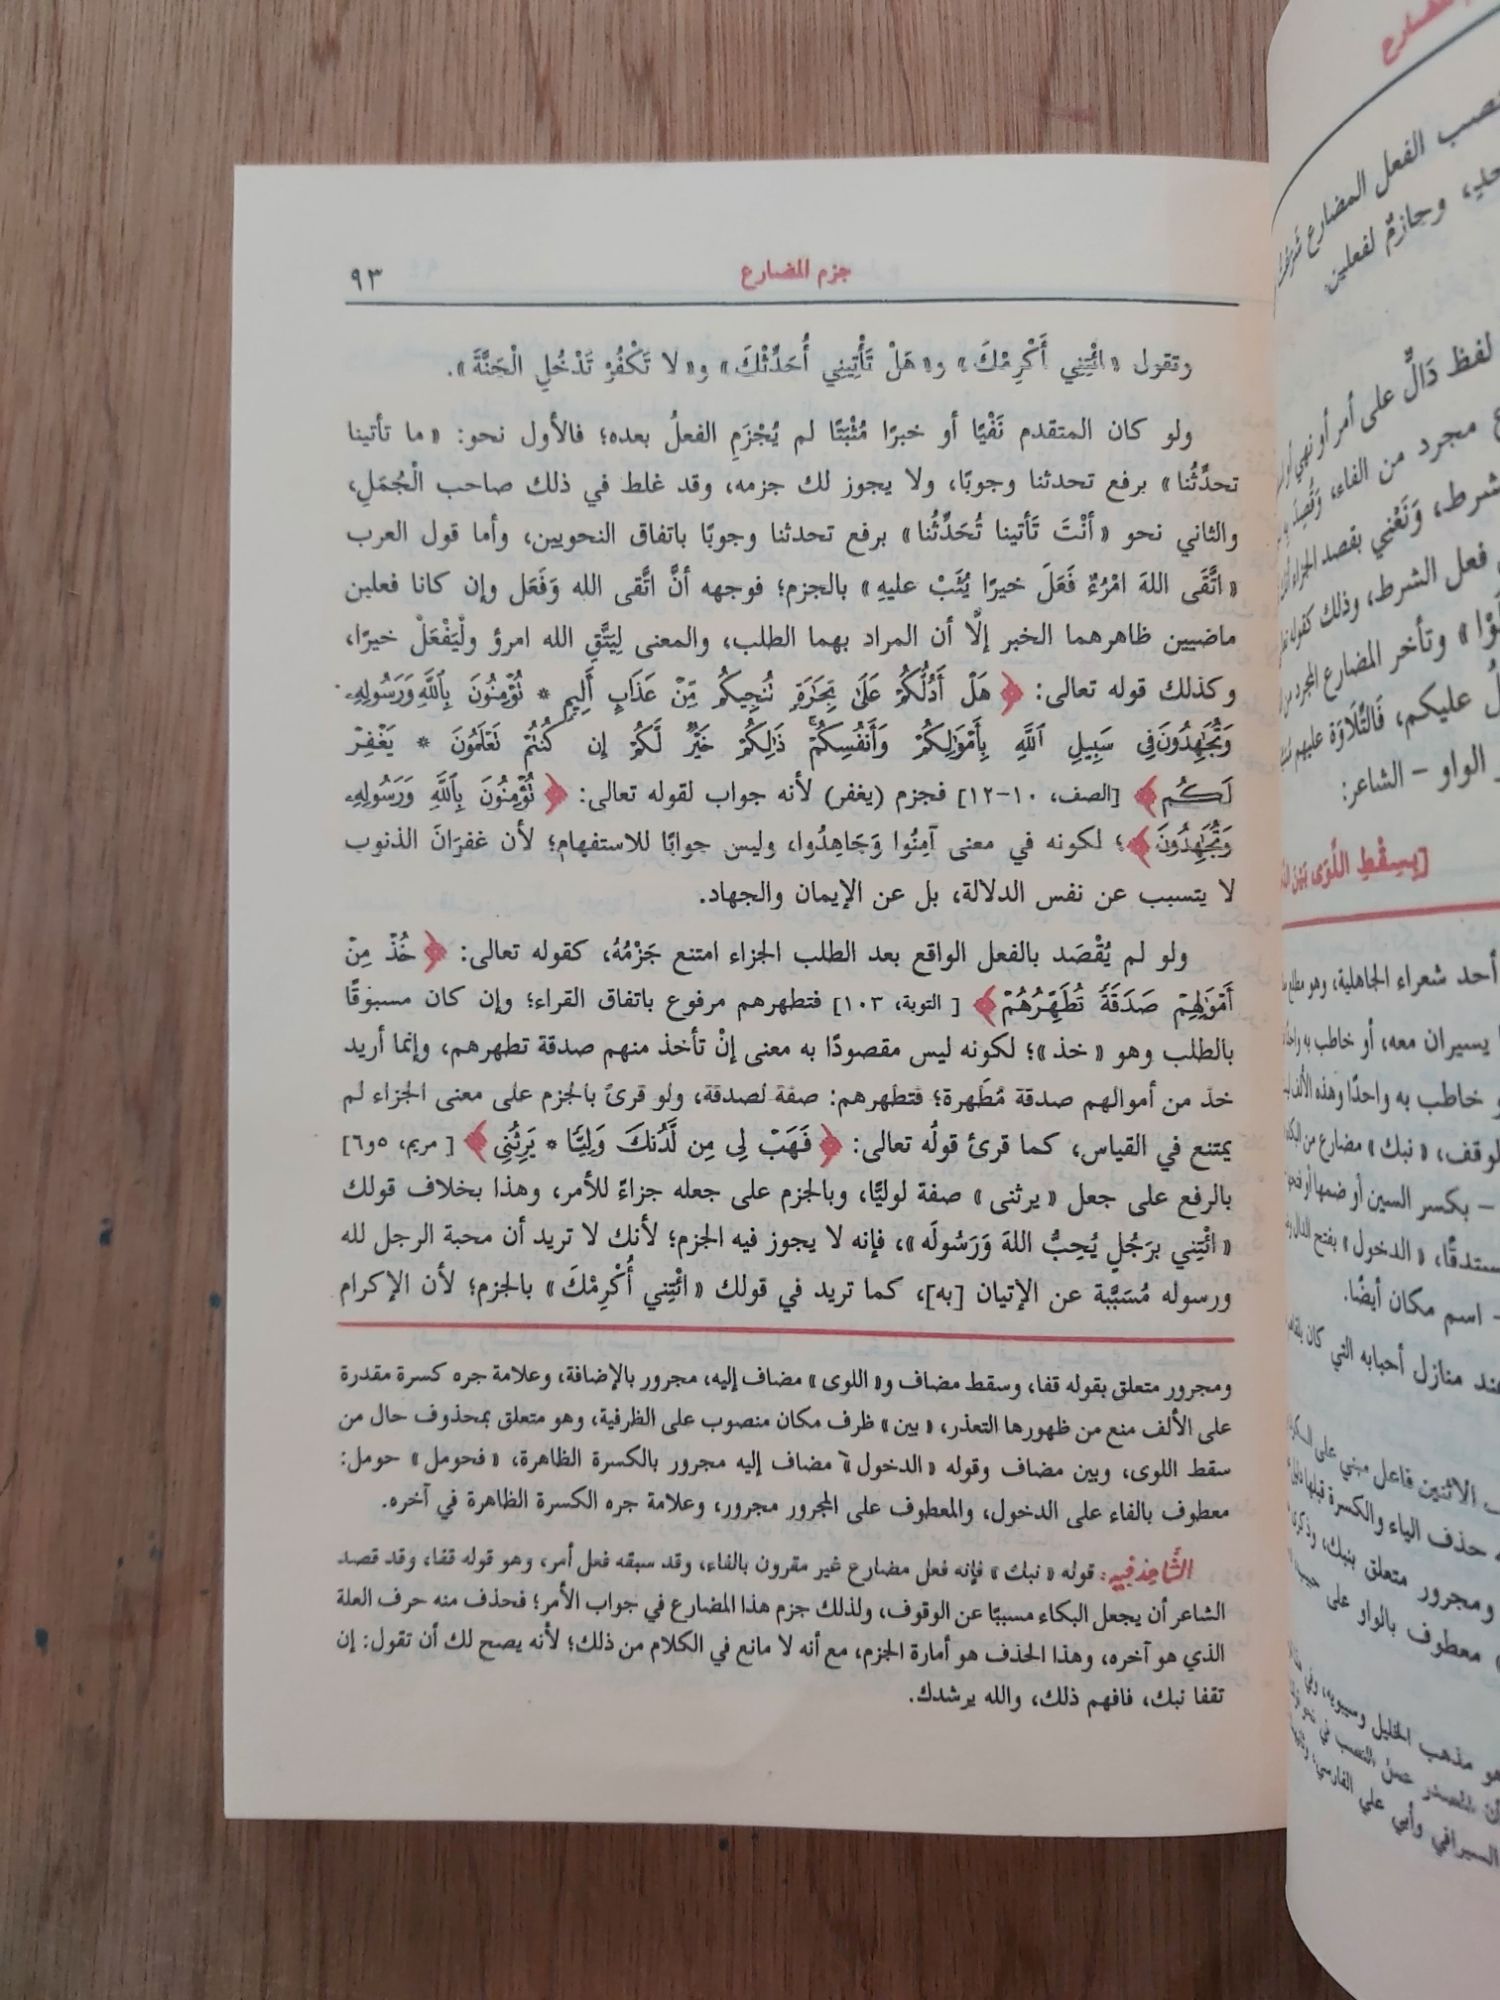 جزم المضارع
٩٣
وتقول «ائْتِنِي أُكْرِمْكَ» و«هَلْ تَأْتِينِي أُحَدِّثْكَ» و«لا تَكْفُرْ تَدْخُلِ الْجَنَّةَ».
ولو كان المتقدم نَفْيًا أو خبرًا مُثْبَتًا لم يُجْزَمِ الفعلُ بعده؛ فالأول نحو: «ما تأتينا
تحدِّثُنا» برفع تحدثنا وجوبًا، ولا يجوز لك جزمه، وقد غلط في ذلك صاحب الْجُمَلِ،
والثاني نحو «أنْتَ تَأتينا تُحَدِّثُنا» برفع تحدثنا وجوبًا باتفاق النحويين، وأما قول العرب
«اتَّقَى اللهَ امْرُءٌ فَعَلَ خيرًا يُثَبْ عليهِ» بالجزم؛ فوجهه أنَّ اتَّقى الله وَفَعَل وإن كانا فعلين
ماضيين ظاهرهما الخبر إلَّا أن المراد بهما الطلب، والمعنى لِيَتَّقِ الله امرؤ ولْيَفْعَلْ خيرًا،
وكذلك قوله تعالى: ﴿هَلْ أَدُلُّكُمْ عَلَىٰ تِجَٰرَةٍ تُنجِيكُم مِّنْ عَذَابٍ أَلِيمٍ * تُؤْمِنُونَ بِٱللَّهِ وَرَسُولِهِۦ
وَتُجَٰهِدُونَ فِى سَبِيلِ ٱللَّهِ بِأَمْوَٰلِكُمْ وَأَنفُسِكُمْ ۚ ذَٰلِكُمْ خَيْرٌ لَّكُمْ إِن كُنتُمْ تَعْلَمُونَ * يَغْفِرْ
لَكُمْ﴾ [الصف، ١٠-١٢] فجزم (يغفر) لأنه جواب لقوله تعالى: ﴿تُؤْمِنُونَ بِٱللَّهِ وَرَسُولِهِۦ
وَتُجَٰهِدُونَ﴾؛ لكونه في معنى آمِنُوا وَجَاهِدُوا، وليس جوابًا للاستفهام؛ لأن غفرَانَ الذنوب
لا يتسبب عن نفس الدلالة، بل عن الإيمان والجهاد.
ولو لم يُقْصَد بالفعل الواقع بعد الطلب الجزاء امتنع جَزْمُهُ، كقوله تعالى: ﴿خُذْ مِنْ
أَمْوَٰلِهِمْ صَدَقَةً تُطَهِّرُهُمْ﴾ [التوبة، ١٠٣] فتطهرهم مرفوع باتفاق القراء؛ وإن كان مسبوقًا
بالطلب وهو «خذ»؛ لكونه ليس مقصودًا به معنى إنْ تأخذ منهم صدقة تطهرهم، وإنَّما أريد
خذ من أموالهم صدقة مُطَهرة؛ فتطهرهم: صفة لصدقة، ولو قرئ بالجزم على معنى الجزاء لم
يمتنع في القياس، كما قرئ قولُه تعالى: ﴿فَهَبْ لِى مِن لَّدُنكَ وَلِيًّا * يَرِثُنِى﴾ [مريم، ٥و٦]
بالرفع على جعل «يرثنى» صفة لوليًّا، وبالجزم على جعله جزاءً للأمر، وهذا بخلاف قولك
«ائْتِنِي برَجُلٍ يُحِبُّ اللهَ وَرَسُولَه»، فإنه لا يجوز فيه الجزم؛ لأنك لا تريد أن محبة الرجل لله
ورسوله مُسَبَّبة عن الإتيان [به]، كما تريد في قولك «ائْتِنِي أُكْرِمْكَ» بالجزم؛ لأن الإكرام
ومجرور متعلق بقوله قفا، وسقط مضاف و«اللوى» مضاف إليه، مجرور بالإضافة، وعلامة جره كسرة مقدرة
على الألف منع من ظهورها التعذر، «بين» ظرف مكان منصوب على الظرفية، وهو متعلق بمحذوف حال من
سقط اللوى، وبين مضاف وقوله «الدخول» مضاف إليه مجرور بالكسرة الظاهرة، «فحومل» حومل:
معطوف بالفاء على الدخول، والمعطوف على المجرور مجرور، وعلامة جره الكسرة الظاهرة في آخره.
الشَّاهِدُ فِيهِ: قوله «نبك» فإنه فعل مضارع غير مقرون بالفاء، وقد سبقه فعل أمر، وهو قوله قفا، وقد قصد
الشاعر أن يجعل البكاء مسببًا عن الوقوف، ولذلك جزم هذا المضارع في جواب الأمر؛ فحذف منه حرف العلة
الذي هو آخره، وهذا الحذف هو أمارة الجزم، مع أنه لا مانع في الكلام من ذلك؛ لأنه يصح لك أن تقول: إن
تقفا نبك، فافهم ذلك، والله يرشدك.
الفعل المضارع
وجازمٌ لفعلين
لفظ دَالٌّ على أمر أو نهي
مجرد من الفاء،
وَنَعْني بقصد الجزاء
فعل الشرط، وذلك كقوله
وتأخر المضارع المجرد من
عليكم، فَالتِّلَاوَة عليهم
الواو - الشاعر:
[بِسِقْطِ اللِّوَى بَيْنَ
أحد شعراء الجاهلية، وهو مطلع
يسيران معه، أو خاطب به
خاطب به واحدًا وهذه الألف
«نبك» مضارع من البكاء
- بكسر السين أو ضمها أو
«الدخول» بفتح الدال
- اسم مكان أيضًا.
منازل أحبابه التي كان
الاثنين فاعل مبني على
حذف الياء والكسرة قبلها
ومجرور متعلق بنبك،
معطوف بالواو على
مذهب الخليل وسيبويه،
السيرافي وأبي علي الفارسي،